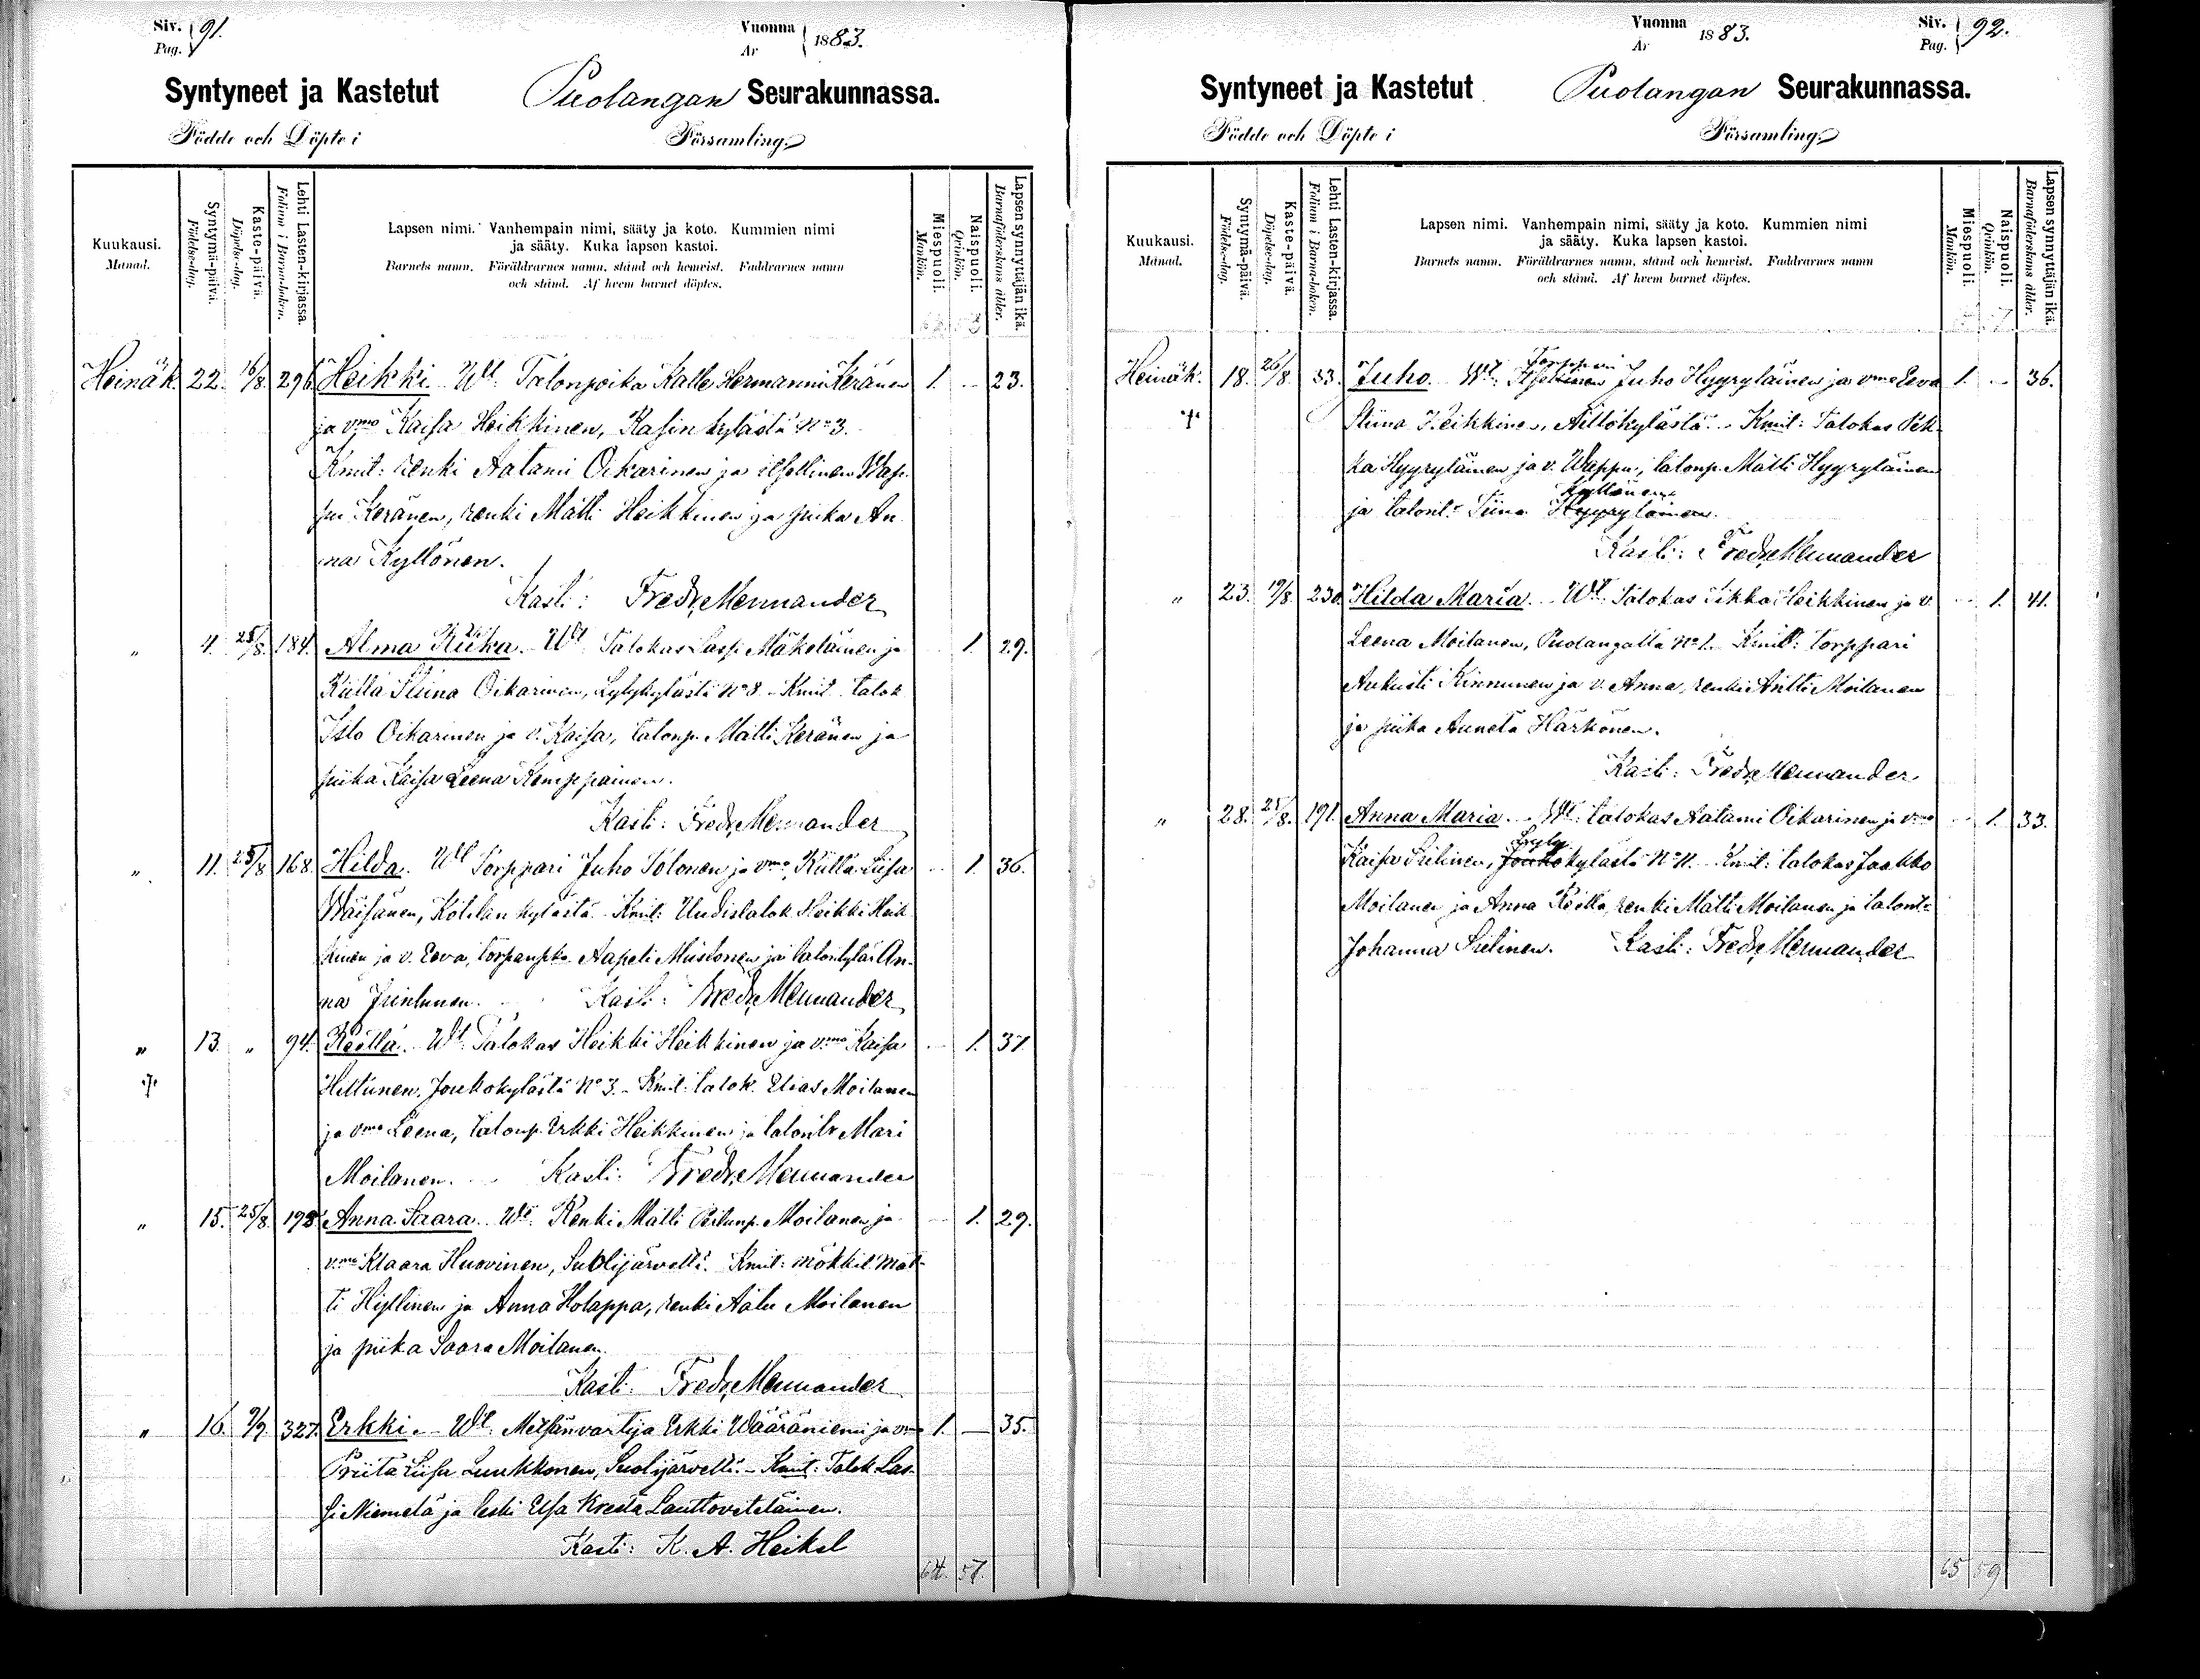 Siv. Pag. 91.
Vuonna År 1883.
Syntyneet ja Kastetut Puolangan Seurakunnassa.
Födde och Döpte i Församling.
Kuukausi. Månad.
Syntymä-päivä. Födelse-dag.
Kaste-päivä. Döpelse-dag.
Lehti Lasten-kirjassa. Folium i Barnaboken.
Lapsen nimi. Vanhempain nimi, sääty ja koto. Kummien nimi
ja sääty. Kuka lapsen kastoi.
Barnets namn. Föräldrarnes namn, stånd och hemvist. Faddrarnes namn
och stånd. Af hvem barnet döptes.
Miespuoli. Mankön.
Naispuoli. Qvinkön.
Lapsen synnyttäjän ikä. Barnaföderskans ålder.
Heinäk. 22. 16/8. 296 Heikki Wt. Talonpoika Kalle Hermanni Keränen 1. - 23.
ja vmo Kaisa Heikkinen, Kasin kylästä No 3.
Kmit: renki Aatami Oikarinen ja itsellinen Wap-
pu Keränen, renki Matti Heikkinen ja piika An-
na Kyllönen.
Kasti: Fredr. Mennander
" 4. 25/8. 184. Alma Riika. Wt. Talokas Lassi Mäkeläinen ja 1. 29.
Stiina Oikarinen, Lylykylästä No 8. Kmit. talok
Isto Oikarinen ja v. Kaisa, talonp. Matti Keränen ja
piika Kaisa Leena Kemppainen.
Kasti: Fredr. Mennander
" 11. 25/8 168. Hilda. Wt. Torppari Juho Tolonen ja vmo, Liisa 1. 36.
Wäisänen, kylästä. Kmit: Uudistalok Heikki Heik
kinen ja v. Eeva, Aapeli Mustonen ja An-
na Juntunen. Kasti: Fredr. Mennander
" 13. " 94. Reetta. Wt. Talokas Heikki Heikkinen ja vmo Kaisa 1. 37.
Hiltunen, Joukokylästä No 3. Kmit: talok. Elias Moilanen
ja vmo Leena, talonp. Erkki Heikkinen ja talontr Mari
Moilanen. Kasti: Fredr. Mennander
" 15. 25/8. 193 Anna Saara. Wt. Renki Matti Moilanen ja 1. 29.
vmo Klaara Huovinen, Suolijärveltä. Kmit: mökkil. Mat-
ti Hyllinen ja Anna Holappa, renki Aatu Moilanen
ja piika Saara Moilanen.
Kasti: Fredr. Mennander
" 16. 9/9. 327. Erkki. Wt. Metsänvartija Erkki Wääräniemi ja vmo 1. - 35.
Priita Liisa Luukkonen, Suolijärveltä. Kmit: Talok Las-
si Niemelä ja leski Elsa Kreeta Lauttoveteläinen.
Kasti: K. A. Heikel
64. 57.
Vuonna År 1883.
Siv. Pag. 92.
Syntyneet ja Kastetut Puolangan Seurakunnassa.
Födde och Döpte i Församling.
Kuukausi. Månad.
Syntymä-päivä. Födelse-dag.
Kaste-päivä. Döpelse-dag.
Lehti Lasten-kirjassa. Folium i Barnaboken.
Lapsen nimi. Vanhempain nimi, sääty ja koto. Kummien nimi
ja sääty. Kuka lapsen kastoi.
Barnets namn. Föräldrarnes namn, stånd och hemvist. Faddrarnes namn
och stånd. Af hvem barnet döptes.
Miespuoli. Mankön.
Naispuoli. Qvinkön.
Lapsen synnyttäjän ikä. Barnaföderskans ålder.
Heinäk. 18. 26/8 33. Juho. Wt. Torppari Itsellinen Juho Hyyryläinen ja vmo Eeva 1. - 36.
Stiina Heikkinen, Aittokylästä. Kmit: Talokas Pek-
ka Hyyryläinen ja v. Wappu, talonp. Matti Hyyryläinen
ja talontr Stiina Kyllönen Hyyryläinen.
Kasti: Fredr. Mennander
" 23. 19/8 230. Hilda Maria. Wt. Talokas Iikka Heikkinen ja v. 1. 41.
Leena Moilanen, Puolangalta No 1. Kmit: torppari
Aukusti Kinnunen ja v. Anna, renki Antti Moilanen
ja piika Anneta Härkönen.
Kasti: Fredr. Mennander
" 28. 25/8. 191. Anna Maria. Wt. talokas Aatami Oikarinen ja vmo 1. 33.
Kaisa Seilinen, Lyly Joukokylästä No 11. Kmit: talokas Jaakko
Moilanen ja Anna Reetta, renki Matti Moilanen ja talontr
Johanna Seilinen. Kasti: Fredr. Mennander
65 59